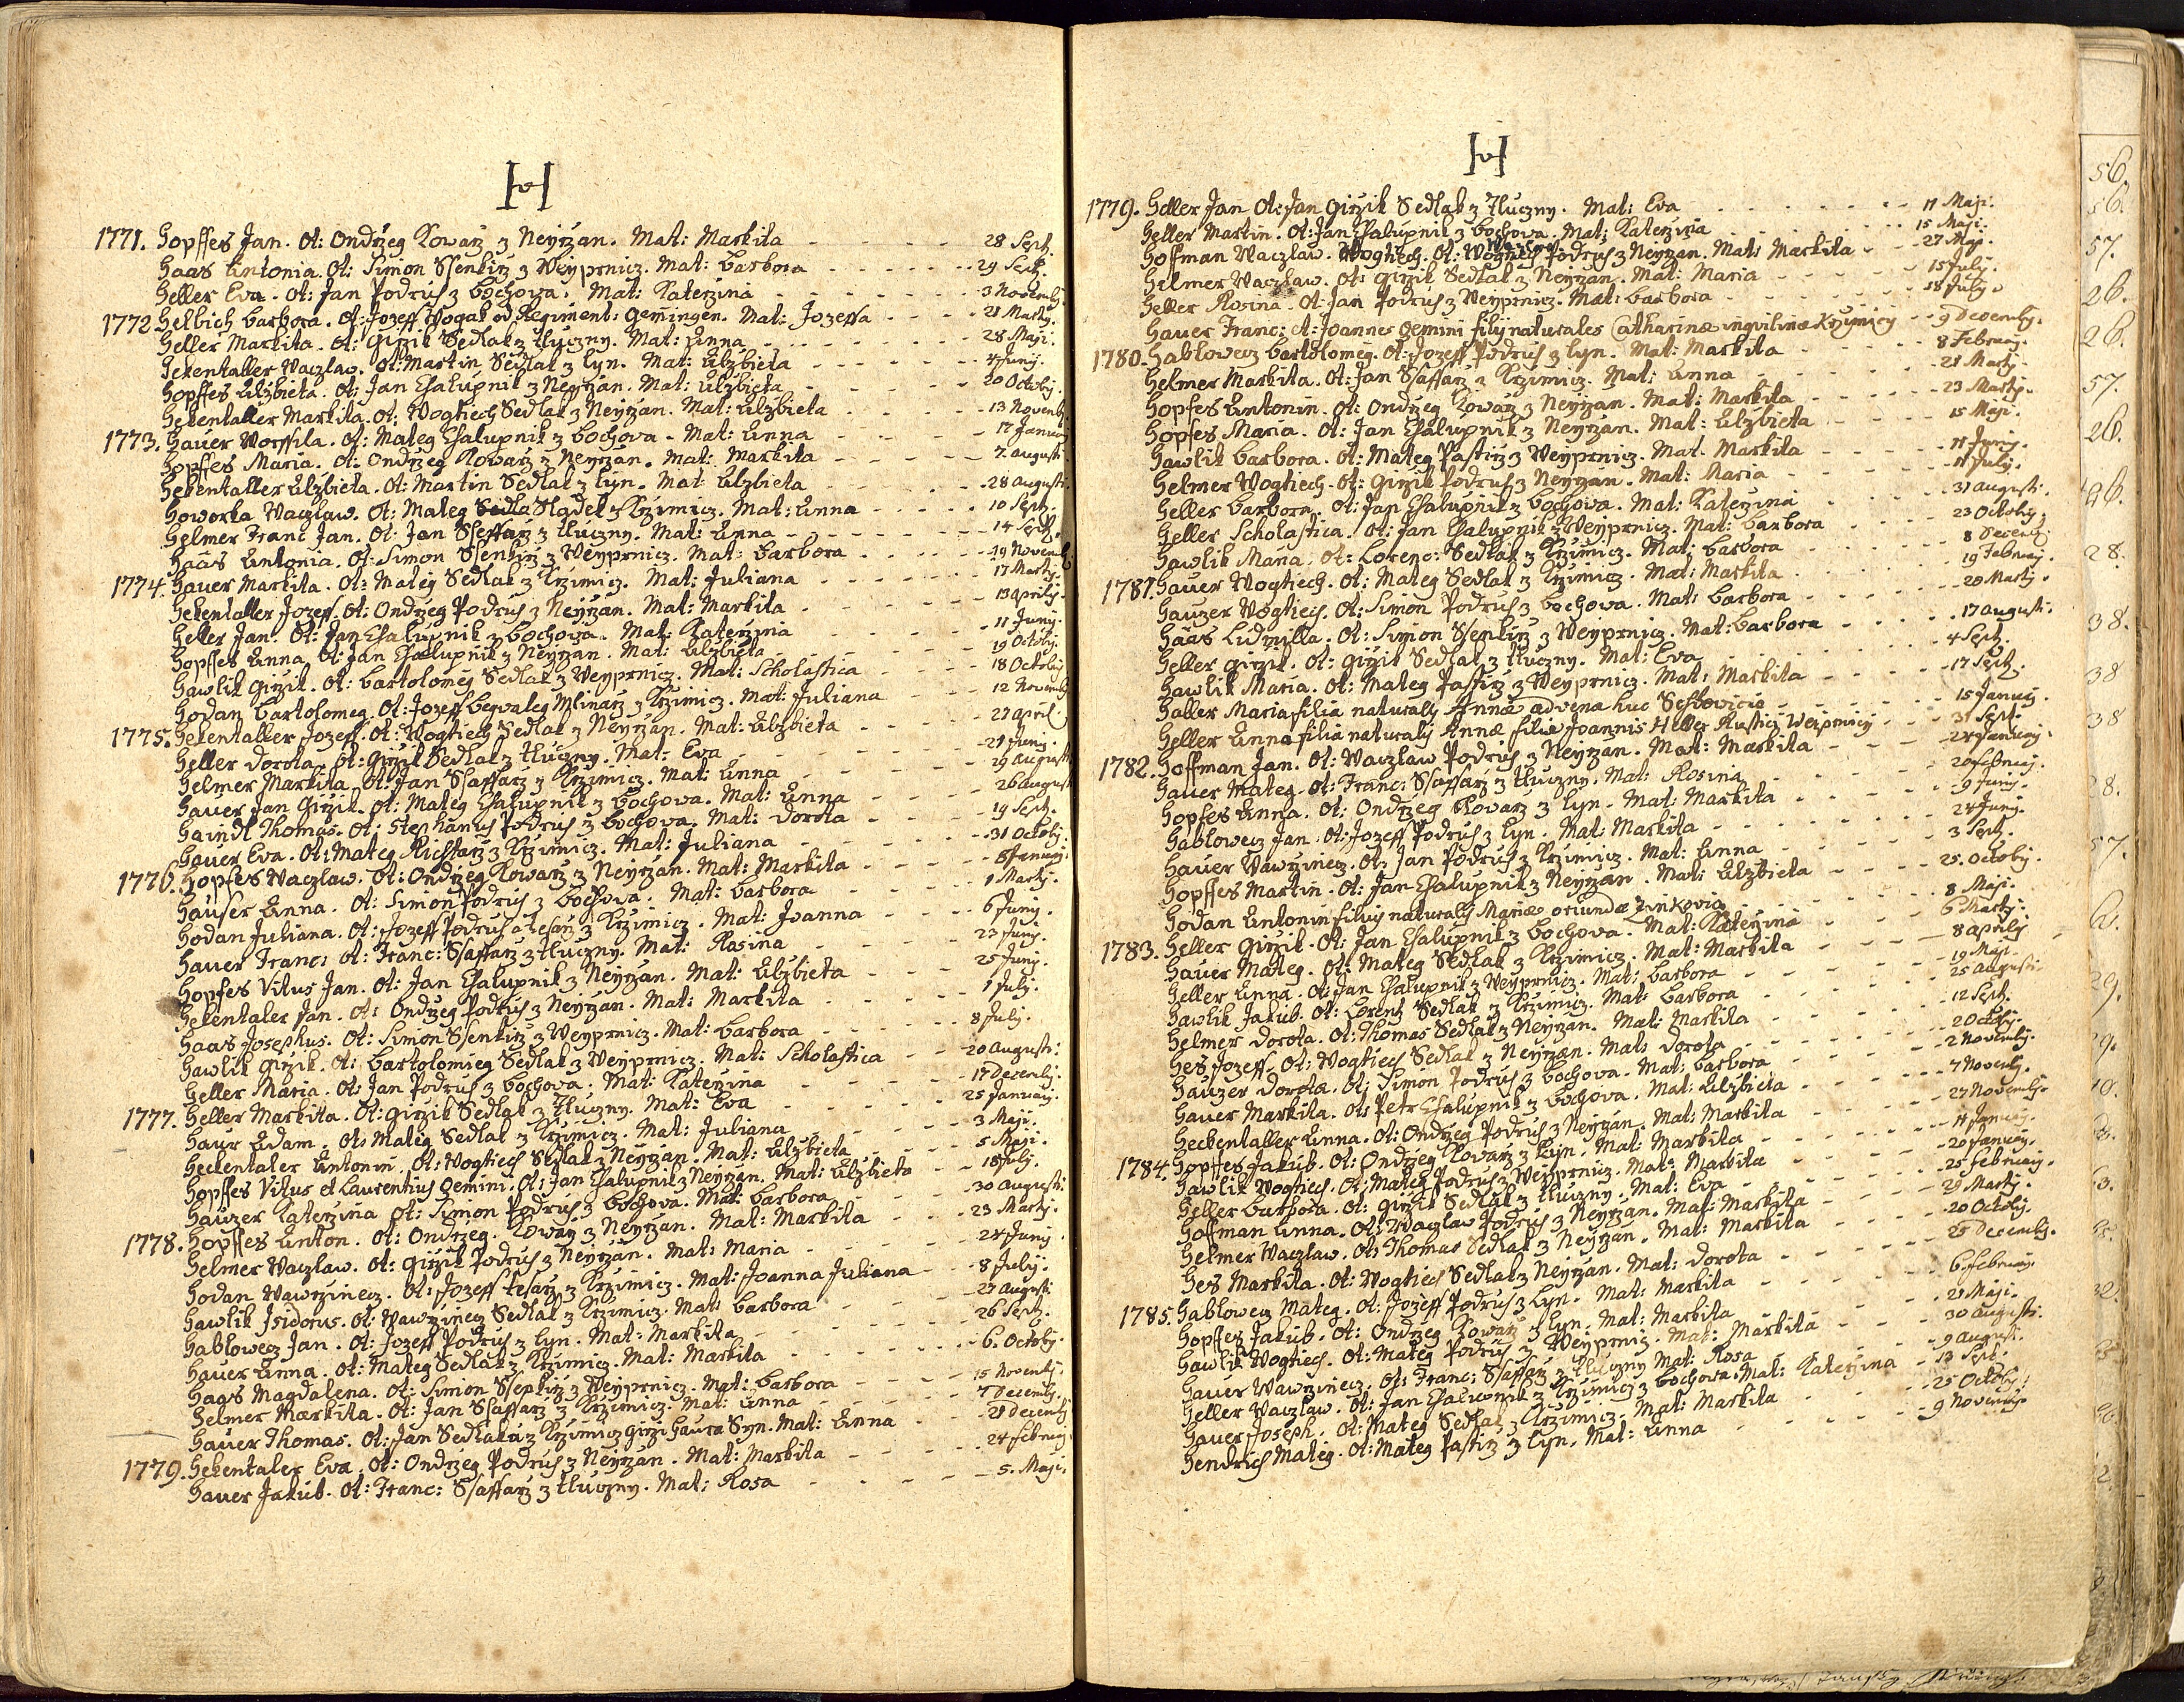 H
1771. Hopffes Jan. Ot: Ondrzeg Kowarz z Neyrzan. Mat: Markita - - - - - - 28 Sept.
Haas Antonia. Ot: Simon Ssenkirz z Weyprnicz. Mat: Barbora - - - - - - 29 Sept.
Heller Eva. Ot: Jan Podruh z Bochova. Mat: Katerzina - - - - - - 3 Novemb.
1772 Helbich Barbora. Ot: Jozeff Wogak od Regiment: Gemingen. Mat: Jozeffa - - - 21 Martij.
Heller Markita. Ot: Girzik Sedlak z Tluczny. Mat: Anna - - - - - - 28 Maji.
Hekentaller Waczlaw. Ot: Martin Sedlak z Lyn. Mat: Alzbieta - - - 4 Junij.
Hopffes Alzbieta. Ot: Jan Chalupnik z Neyrzan. Mat: Alzbieta - - - - 20 Octobr.
Hekentaller Markita. Ot: Wogtiech Sedlak z Neyrzan. Mat: Alzbieta - - - - 13 Novemb.
1773. Hauer Worssila. Ot: Mateg Chalupnik z Bochova. Mat: Anna - - - - 17 Januarij
Hopffes Maria. Ot: Ondrzeg Kowarz z Neyrzan. Mat: Markita - - - - - 7. Augusti.
Hekentaller Alzbieta. Ot: Martin Sedlak z Lyn. Mat: Alzbieta - - - - 28 Augusti.
Howorka Waczlaw. Ot: Mateg Sedla Sladek z Krzimicz. Mat: Anna - - - - - 10 Sept.
Helmer Franc Jan. Ot: Jan Ssaffarz z Tluczny. Mat: Anna - - - - - - 14 Sept.
Haas Antonia. Ot: Simon Ssenkirz z Weyprnicz. Mat: Barbora - - - - 19 Novemb.
1774. Hauer Markita. Ot: Mateg Sedlak z Krzimicz. Mat: Juliana - - - - - - 17 Martij.
Hekentaller Jozeff. Ot: Ondrzeg Podruh z Neyrzan. Mat: Markita - - - - - 13 Aprilij.
Heller Jan. Ot: Jan Chalupnik z Bochova. Mat: Katerzina - - - - - - 11 Junij.
Hopffes Anna. Ot: Jan Chalupnik z Neyrzan. Mat: Alzbieta - - - - - - 19 Octobr.
Hawlik Girzik. Ot: Bartolomeg Sedlak z Weyprnicz. Mat: Scholastica - - - - 18 Octobr.
Hodan Bartolomeg. Ot: Jozeff Begvaleg Mlinarz z Krzimicz. Mat: Juliana - - - 12 Novemb.
1775. Hekentaller Jozeff. Ot: Wogtiech Sedlak z Neyrzan. Mat: Alzbieta - - - - 27 April
Heller Dorota. Ot: Girzik Sedlak z Tluczny. Mat: Eva - - - - - - 21 Junij.
Helmer Markita. Ot: Jan Ssaffarz z Krzimicz. Mat: Anna - - - - - 29 Augusti
Hauer Jan Girzik. Ot: Mateg Chalupnik z Bochova. Mat: Anna - - - - 26 August
Haindl Thomas. Ot: Stephanus Podruh z Bochova. Mat: Dorota - - - - 19 Sept.
Hauer Eva. Ot: Mateg Richtarz z Krzimicz. Mat: Juliana - - - - - - 31 Octobr.
1776. Hopfes Waczlaw. Ot: Ondrzeg Kowarz z Neyrzan. Mat: Markita - - - - 5 Januarij.
Hauser Anna. Ot: Simon Podruh z Bochova. Mat: Barbora - - - - - - 1 Martij.
Hodan Juliana. Ot: Jozeff Podruh a Tesarz z Krzimicz. Mat: Joanna - - - - 6 Junij.
Hauer Franc: Ot: Franc: Ssaffarz z Tluczny. Mat: Rosina - - - - - 23 Junij.
Hopfes Vitus Jan. Ot: Jan Chalupnik z Neyrzan. Mat: Alzbieta - - - 25 Junij.
Hekentaler Jan. Ot: Ondrzeg Podruh z Neyrzan. Mat: Markita - - - - 1 July.
Haas Josephus. Ot: Simon Ssenkirz z Weyprnicz. Mat: Barbora - - - - - 8 July.
Hawlik Girzik. Ot: Bartolomieg Sedlak z Weyprnicz. Mat: Scholastica - - - 20 Augusti.
Heller Maria. Ot: Jan Podruh z Bochova. Mat: Katerzina - - - - - 17 Decemb.
1777. Heller Markita. Ot: Girzik Sedlak z Tluczny. Mat: Eva - - - - - 25 Januarij.
Haur Adam. Ot: Mateg Sedlak z Krzimicz. Mat: Juliana - - - - - 3 Maji.
Heckentaler Antonin. Ot: Wogtiech Sedlak z Neyrzan. Mat: Alzbieta - - - - 5 Maji.
Hopffes Vitus et Laurentius Gemini. Ot: Jan Chalupnik z Neyrzan. Mat: Alzbieta - - 18 July.
Hauzer Katerzina Ot: Simon Podruh z Bochova. Mat: Barbora - - - - - 30 Augusti.
1778. Hopffes Anton. Ot: Ondrzeg. Kowarz z Neyrzan. Mat: Markita - - - 23 Martij.
Helmer Waczlaw. Ot: Girzik Podruh z Neyrzan. Mat: Maria - - - - - 24 Junij
Hodan Wawrzinecz. Ot: Jozeff Tesarz z Krzimicz. Mat: Joanna Juliana - - - 8 July.
Hawlik Isidorus. Ot: Wawrzinecz Sedlak z Krzimicz. Mat: Barbora - - - - 27 Augusti
Hablowecz Jan. Ot: Jozeff Podruh z Lyn. Mat: Markita - - - - - - 26 Sept.
Hauer Anna. Ot: Mateg Sedlak z Krzimicz. Mat: Markita - - - - - 6. Octobr.
Haas Magdalena. Ot: Simon Ssenkirz z Weyprnicz. Mat: Barbora - - - - 15 Novemb.
Helmer Markita. Ot: Jan Ssaffarz z Krzimicz. Mat: Anna - - - - - 7 Decemb.
Hauer Thomas. Ot: Jan Sedlaka z Krzimicz Girzi Haura Syn. Mat: Anna - - - 21 Decemb
1779. Hekentaler Eva. Ot: Ondrzeg Podruh z Neyrzan. Mat: Markita - - - - 24 Februarij
Hauer Jakub. Ot: Franc: Ssaffarz z Tluczny. Mat: Rosa - - - - - - 5. Maji.
H
1779. Heller Jan Ot: Jan Girzik Sedlak z Tluczny. Mat: Eva - - - - - - 11 Maji.
Heller Martin. Ot: Jan Chalupnik z Bochova. Mat: Katerzina - - - - - - 15 Maji.
Hoffman Waczlaw. Wogtiech. Ot: Wogtiech Waczlaw Podruh z Neyrzan. Mat: Markita - - 27 Maji.
Helmer Waczlaw. Ot: Girzik Sedlak z Neyrzan. Mat: Maria - - - - - 15 July.
Heller Rosina. Ot: Jan Podruh z Weyprnicz. Mat: Barbora - - - - - 18 July.
Hauer Franc: et Joannes Gemini filij naturales Catharinæ inquilinæ Krzimicz - - 9 Decemb.
1780. Hablowecz Bartolomeg. Ot: Jozeff Podruh z Lyn. Mat: Markita - - - - 8 Februarij.
Helmer Markita. Ot: Jan Ssaffarz z Krzimicz. Mat: Anna - - - - - 21 Martij.
Hopfes Antonin. Ot: Ondrzeg Kowarz z Neyrzan. Mat: Markita - - - - 23 Martij.
Hopfes Maria. Ot: Jan Chalupnik z Neyrzan. Mat: Alzbieta - - - - - 15 Maji.
Hawlik Barbora. Ot: Mateg Pastirz z Weyprnicz. Mat. Markita - - - - 11 Junij.
Helmer Wogtiech. Ot: Girzik Podruh z Neyrzan. Mat: Maria - - - - - 11 July.
Heller Barbora. Ot: Jan Chalupnik z Bochova. Mat: Katerzina - - - - 31 Augusti.
Heller Scholastica. Ot: Jan Chalupnik z Weyprnicz. Mat: Barbora - - - - 23 Octobr.
Hawlik Maria. Ot: Lorenc: Sedlak z Krzimicz. Mat: Barbora - - - - - 8 Decemb
1781. Hauer Wogtiech. Ot: Mateg Sedlak z Krzimicz. Mat: Markita - - - - - 19 Februarij.
Hauzer Wogtiech. Ot: Simon Podruh z Bochova. Mat: Barbora - - - - - 20 Martij.
Haas Ludmilla. Ot: Simon Ssenkirz z Weyprnicz. Mat: Barbora - - - - 17 Augusti.
Heller Girzik. Ot: Girzik Sedlak z Tluczny. Mat: Eva - - - - - - 4 Sept.
Hawlik Maria. Ot: Mateg Pastirz z Weyprnicz. Mat: Markita - - - - 17 Sept.
Haller Maria filia naturalis Annæ advena huc - - - 15 Januarij.
Heller Anna filia naturalis Annæ filiæ Joannis Heller Rustici Weiprnicz - - 3 Sept.
1782. Hoffman Jan. Ot: Waczlaw Podruh z Neyrzan. Mat: Markita - - - 24 Januarij.
Hauer Mateg. Ot: Franc: Ssaffarz z Tluczny. Mat: Rosina - - - - 20 Februarij.
Hopfes Anna. Ot: Ondrzeg Kowarz z Lyn. Mat: Markita - - - - - 9 Junij.
Hablowecz Jan. Ot: Jozeff Podruh z Lyn. Mat: Markita - - - - - 24 Junij.
Hauer Wawrzinecz. Ot: Jan Podruh z Krzimicz. Mat: Anna - - - - - 3 Sept.
Hopffes Martin. Ot: Jan Chalupnik z Neyrzan. Mat: Alzbieta - - - 25. Octobr.
Hodan Antonin filius naturalis Mariæ oriundæ Zinkovia - - - - 8 Maji.
1783. Heller Girzik. Ot: Jan Chalupnik z Bochova. Mat: Katerzina - - - - 6 Martij.
Hauer Mateg. Ot: Mateg Sedlak z Krzimicz. Mat: Markita - - - - 8 Aprilij
Heller Anna. Ot: Jan Chalupnik z Weyprnicz. Mat: Barbora - - - - - 19 Maji.
Hawlik Jakub. Ot: Lorentz Sedlak z Krzimicz. Mat: Barbora - - - - 25 Augusti.
Helmer Dorota. Ot: Thomas Sedlak z Neyrzan. Mat: Markita - - - - 12 Sept.
Hes Jozeff. Ot: Wogtiech Sedlak z Neyrzan. Mat: Dorota - - - - - 2 Octobr.
Hauzer Dorota. Ot: Simon Podruh z Bochova. Mat: Barbora - - - - 2 Novemb.
Hauer Markita. Ot: Petr Chalupnik z Bochova. Mat: Alzbieta - - - - 7 Novemb.
Heckentaller Anna. Ot: Ondrzeg Podruh z Neyrzan. Mat: Markita - - - 27 Novemb.
1784. Hopffes Jakub. Ot: Ondrzeg Kowarz z Lyn. Mat: Markita - - - - 11 Januarij.
Hawlik Wogtiech. Ot: Mateg Podruh z Weyprnicz. Mat: Markita - - - - 20 Januarij.
Heller Barbora. Ot: Girzik Sedlak z Tluczny. Mat: Eva - - - - - 25 Februarij.
Hoffman Anna. Ot: Waczlaw Podruh z Neyrzan. Mat: Markita - - - - 29 Martij.
Helmer Waczlaw. Ot: Thomas Sedlak z Neyrzan. Mat: Markita - - - - 20 Octobr.
Hes Markita. Ot: Wogtiech Sedlak z Neyrzan. Mat: Dorota - - - - 25 Decemb.
1785. Hablowecz Mateg. Ot: Jozeff Podruh z Lyn. Mat: Markita - - - - - 6. Februarij.
Hopffes Jakub. Ot: Ondrzeg Kowarz z Lyn. Mat: Markita - - - - - 21 Maji.
Hawlik Wogtiech. Ot: Mateg Podruh z Weyprnicz. Mat: Markita - - - 30 Augusti.
Hauer Wawrzinecz. Ot: Franc: Ssaffarz z Tluczny Mat: Rosa - - - - 9 August.
Heller Waczlaw. Ot: Jan Chalupnik z Krzimicz z Bochova. Mat: Katerzina - 13 Sept.
Hauer Joseph. Ot: Mateg Sedlak z Krzimicz. Mat: Markita - - - - 25 Octobr.
Hendrich Mateg. Ot: Mateg Pastirz z Lyn. Mat: Anna - - - - - 9 Novemb.
56.
56.
57.
26.
26.
57.
26.
28.
38.
38
38
28.
57.
29.